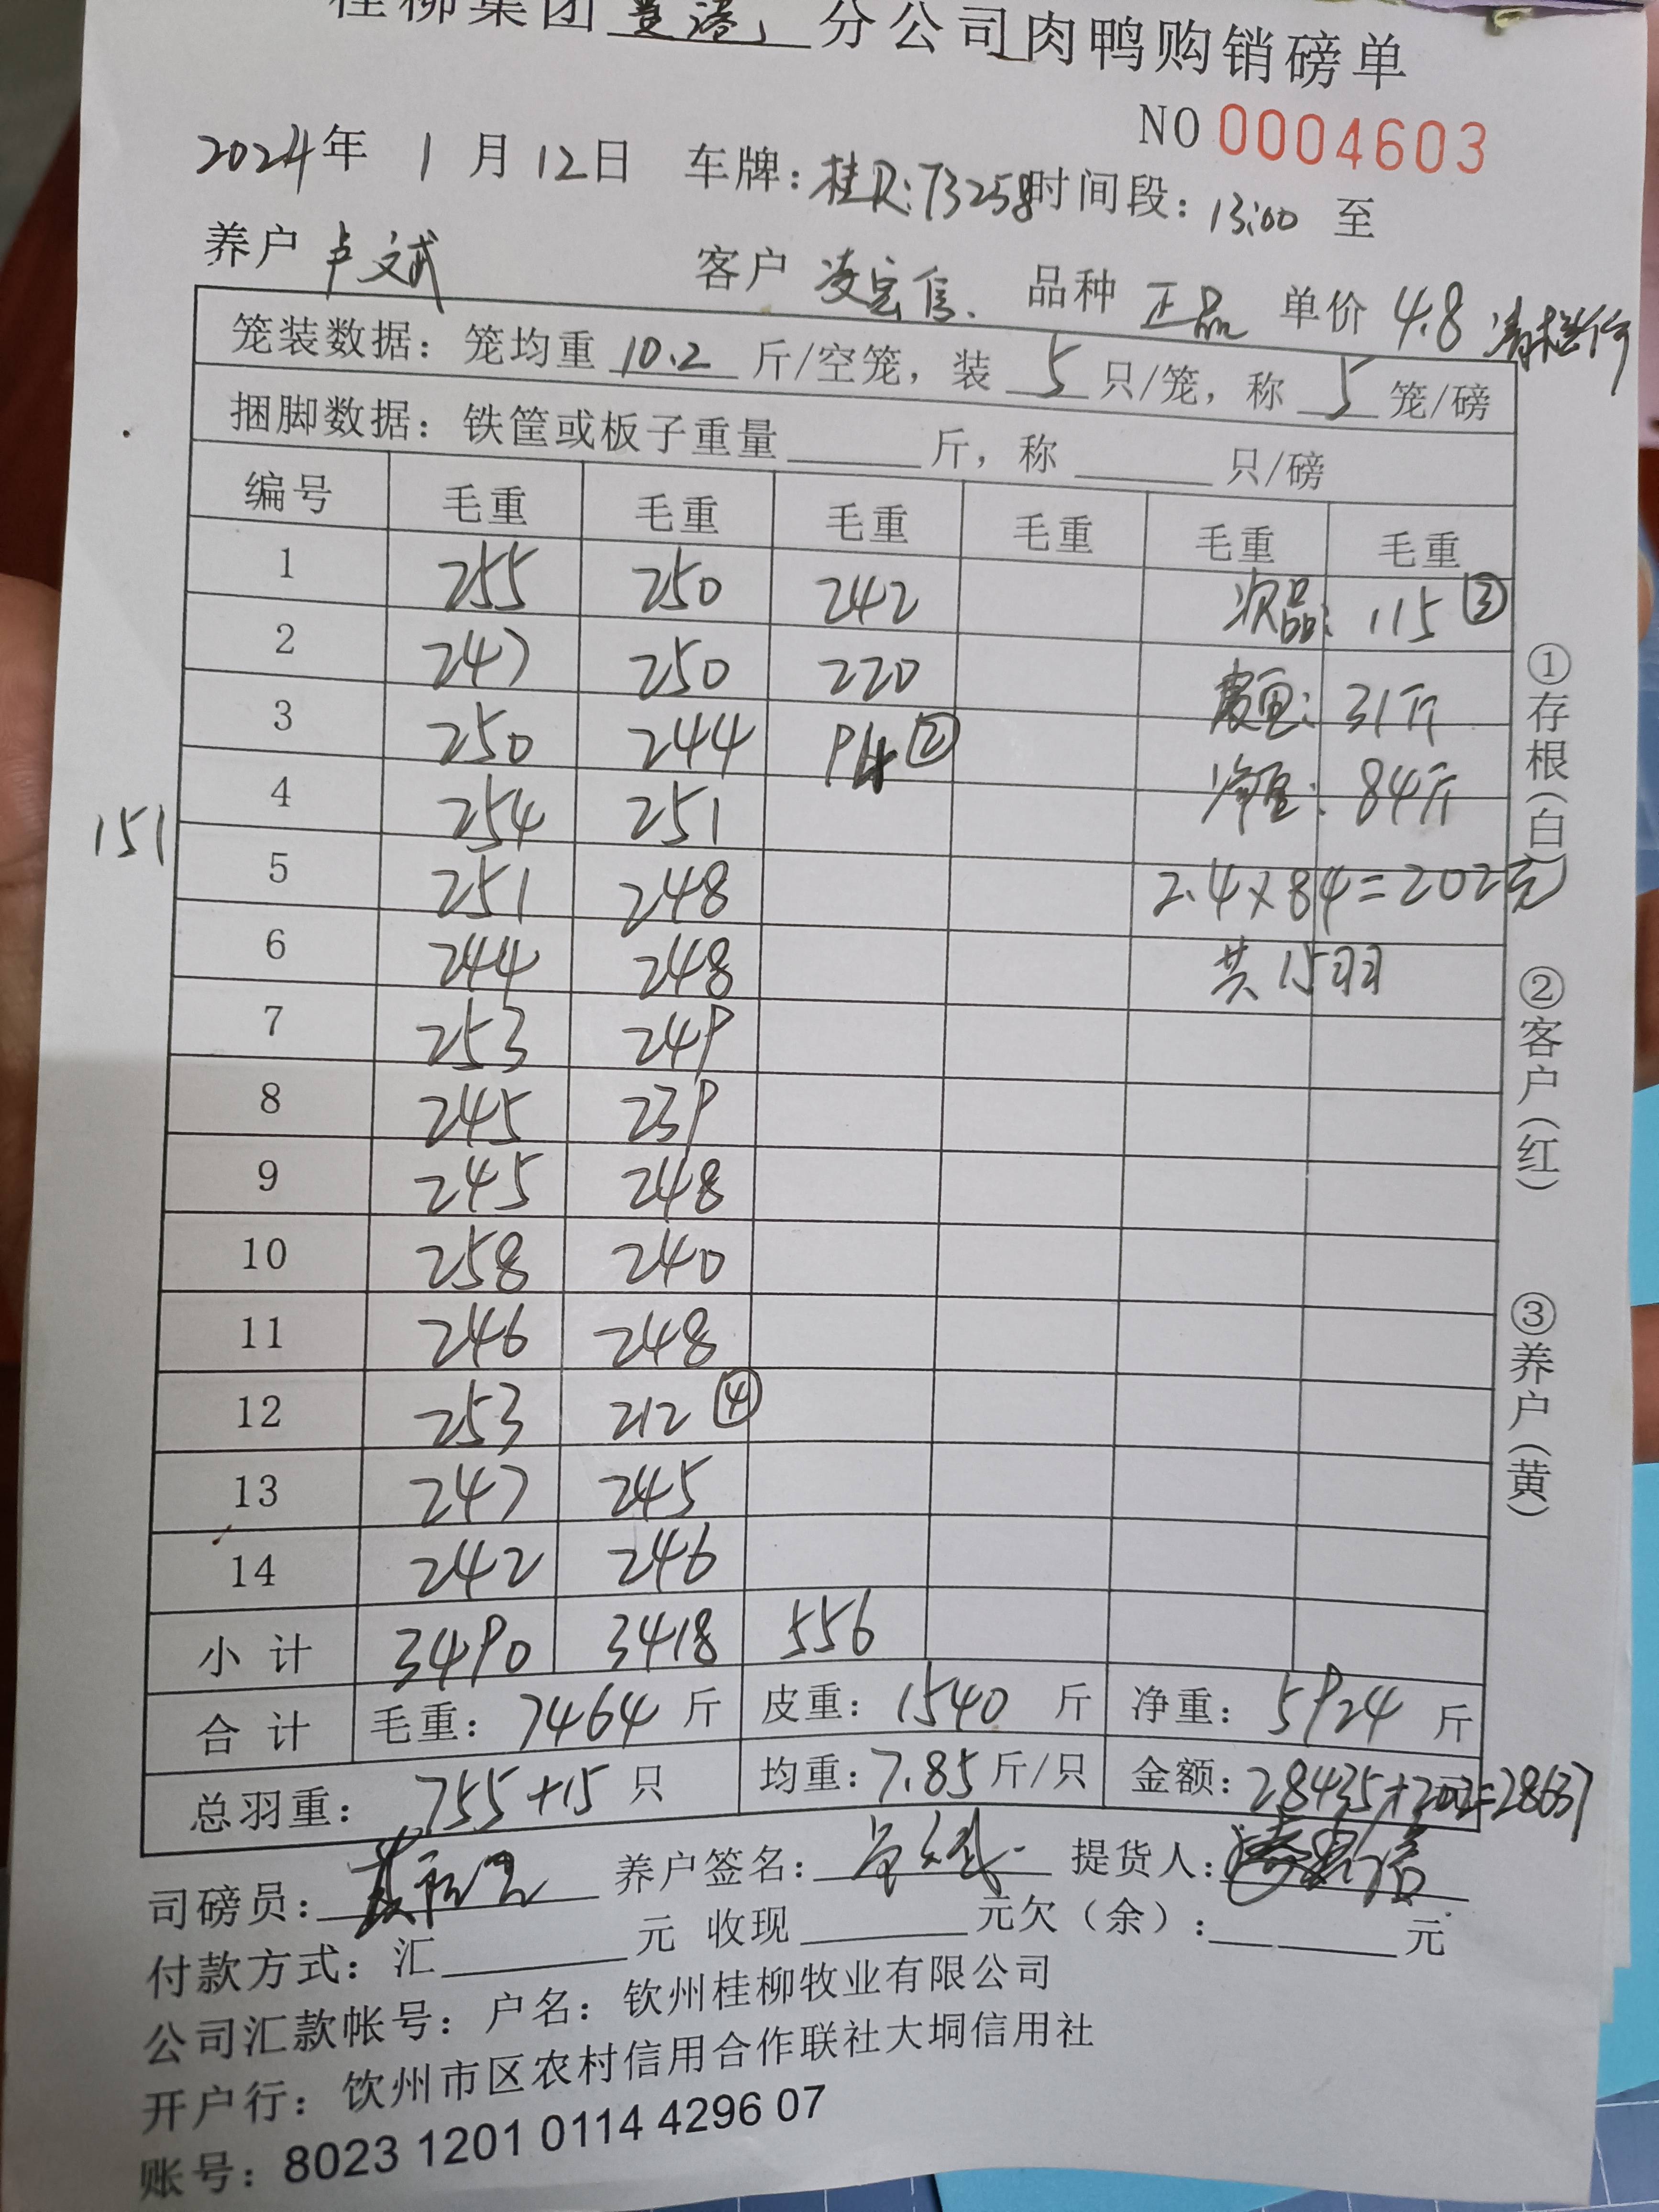 桂柳集团贵港分公司肉鸭购销磅单
NO 0004603
2024年 1月12日 车牌:桂R:T3258时间段:13:00 至
养户 卢文武 客户 凌宏信 品种 正品 单价 4.8
笼装数据:笼均重 10.2 斤/空笼,装 5 只/笼,称 5 笼/磅
捆脚数据:铁筐或板子重量______斤,称______只/磅
编号 毛重 毛重 毛重 毛重 毛重 毛重
1 255 250 242 次品: 115 ③
2 247 250 220 皮重: 31斤
3 250 244 94 ② 净重: 84斤
4 254 251
151
5 251 248 2.4×84=202元
6 244 248 共15羽
7 253 249
8 245 239
9 245 248
10 258 240
11 246 248
12 253 212 ④
13 247 245
14 242 246
小计 3490 3418 556
合计 毛重:7464 斤 皮重:1540 斤 净重:5924 斤
总羽重:755+15 只 均重:7.85 斤/只 金额:28435+202=28637
司磅员: 养户签名: 提货人:凌宏信
付款方式:汇______元 收现______元欠(余):______元
公司汇款帐号:户名:钦州桂柳牧业有限公司
开户行:钦州市区农村信用合作联社大垌信用社
账号:8023 1201 0114 4296 07
①存根(白) ②客户(红) ③养户(黄)